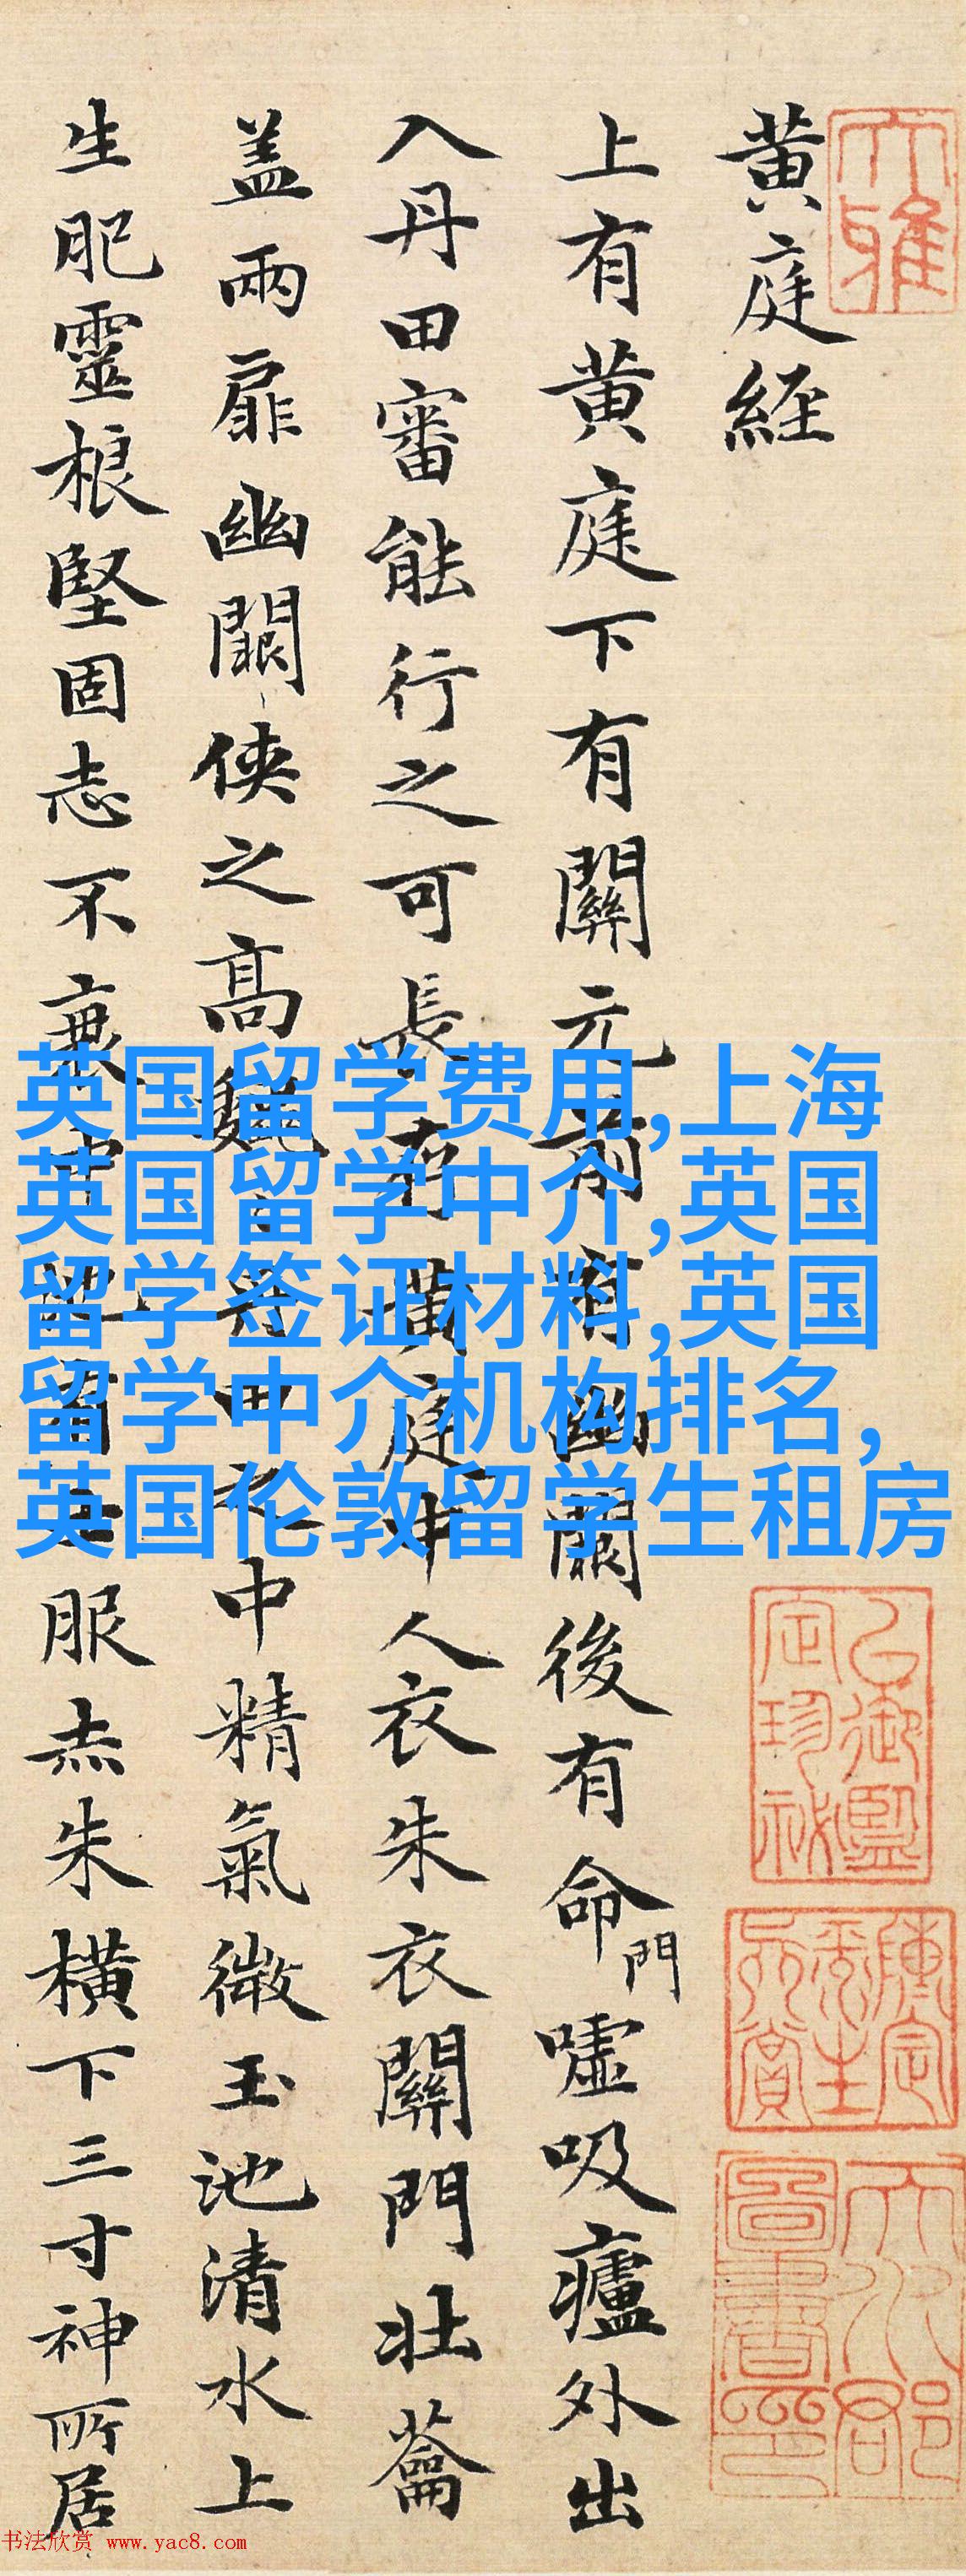 大雅
黄庭経
上有黄庭下有關元前有幽闕後有命門嘘吸廬外出
入丹田審能行之可長存黄庭中人衣朱衣關門壯蘥
盖兩扉幽闕侠之高巍巍丹田之中精氣微玉池清水上
生肥靈根堅固志不衰中池有士服赤朱横下三寸神所居
英国留学费用,上海
英国留学中介,英国
留学签证材料,英国
留学中介机构排名,
英国伦敦留学生租房
书法欣赏 www.yac8.com